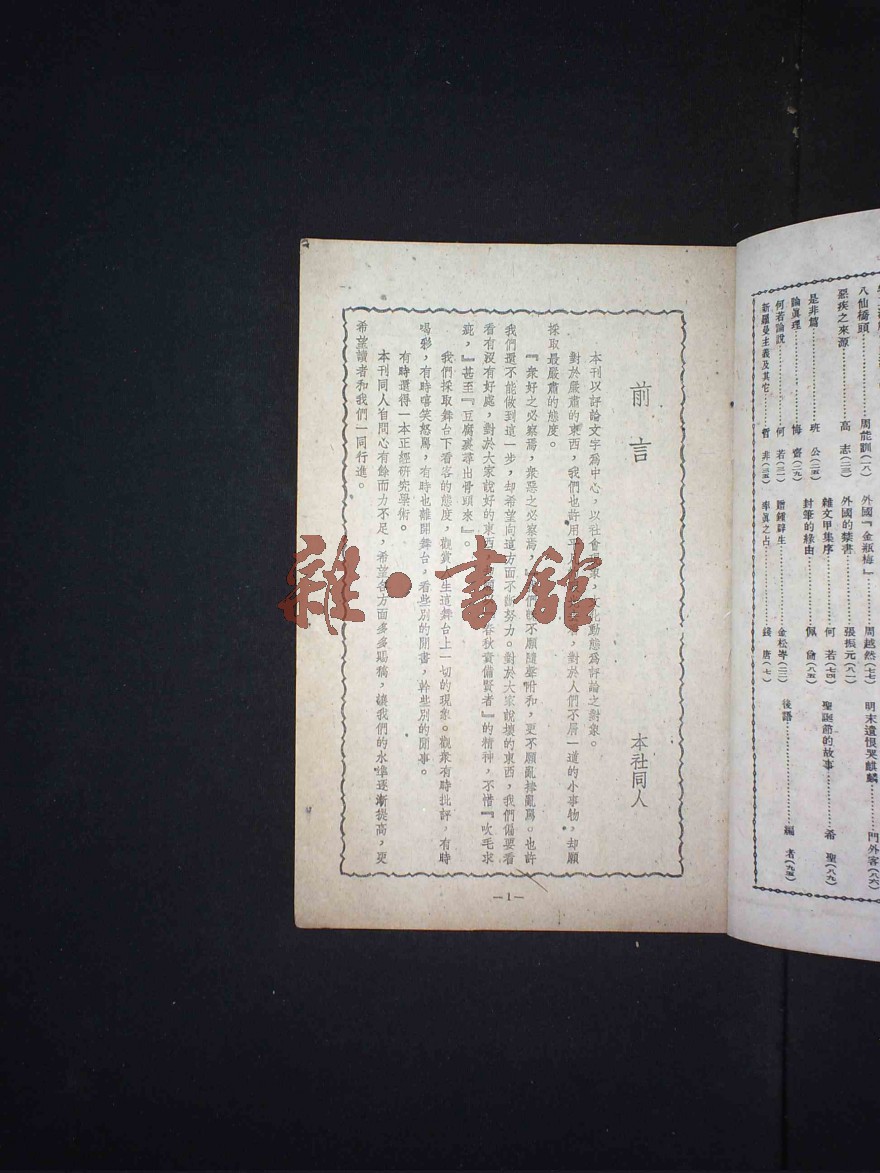 八仙橋頭………周能訓(一八)
惡疾之來源………高 志(二三)
是非篇………班 公(二五)
論眞理………悔 齋(二九)
何若論說………何 若
新羅曼主義及其它……哲 非(三五)
外國『金瓶梅』………周越然(七七)
外國的禁書………張振元(八一)
雜文甲集序………何 若(七四)
封筆的緣由………佩
贈鍾辟生………金松岑
率眞之占………錢 唐(七)
明末遺恨哭麒麟………門外客(八六)
聖誕節的故事………希 聖(八九)
後語………編 者(九五)
前言
本社同人
本刊以評論文字爲中心,以社會現象,文化動態爲評論之對象。
對於嚴肅的東西,我們也許用,對於人們不屑一道的小事物,却願
採取最嚴肅的態度。
『衆好之必察焉,衆惡之必察焉,』我們旣不願隨聲附和,更不願亂捧亂罵。也許
我們還不能做到這一步,却希望向這方面不斷努力。對於大家說壞的東西,我們偏要看
看有沒有好處,對於大家說好的東西,春秋責備賢者』的精神,不惜『吹毛求
疵,』甚至『豆腐裏尋出骨頭來』。
我們採取舞台下看客的態度,觀賞人生這舞台上一切的現象。觀衆有時批評,有時
喝彩,有時嘻笑怒罵,有時也離開舞台,看些別的閒書,幹些別的閒事。
有時還得一本正經研究學術。
本刊同人自問心有餘而力不足,希望各方面多多賜稿,讓我們的水準逐漸提高,更
希望讀者和我們一同行進。
—1—
雜·書館